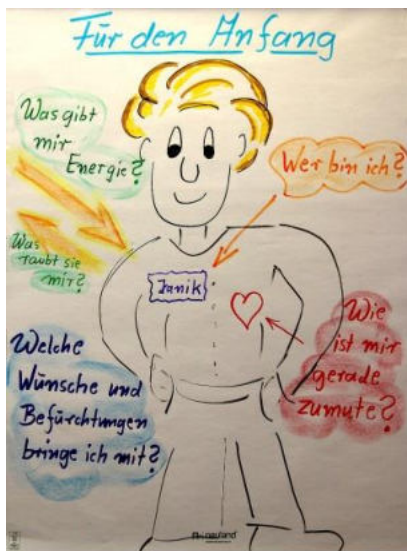 Für den Anfang
Was gibt
mir
Energie?
Wer bin ich?
Was
raubt sie
mir?
Janik
Wie
ist mir
gerade
zumute?
Welche
Wünsche und
Befürchtungen
bringe ich mit?
neuland